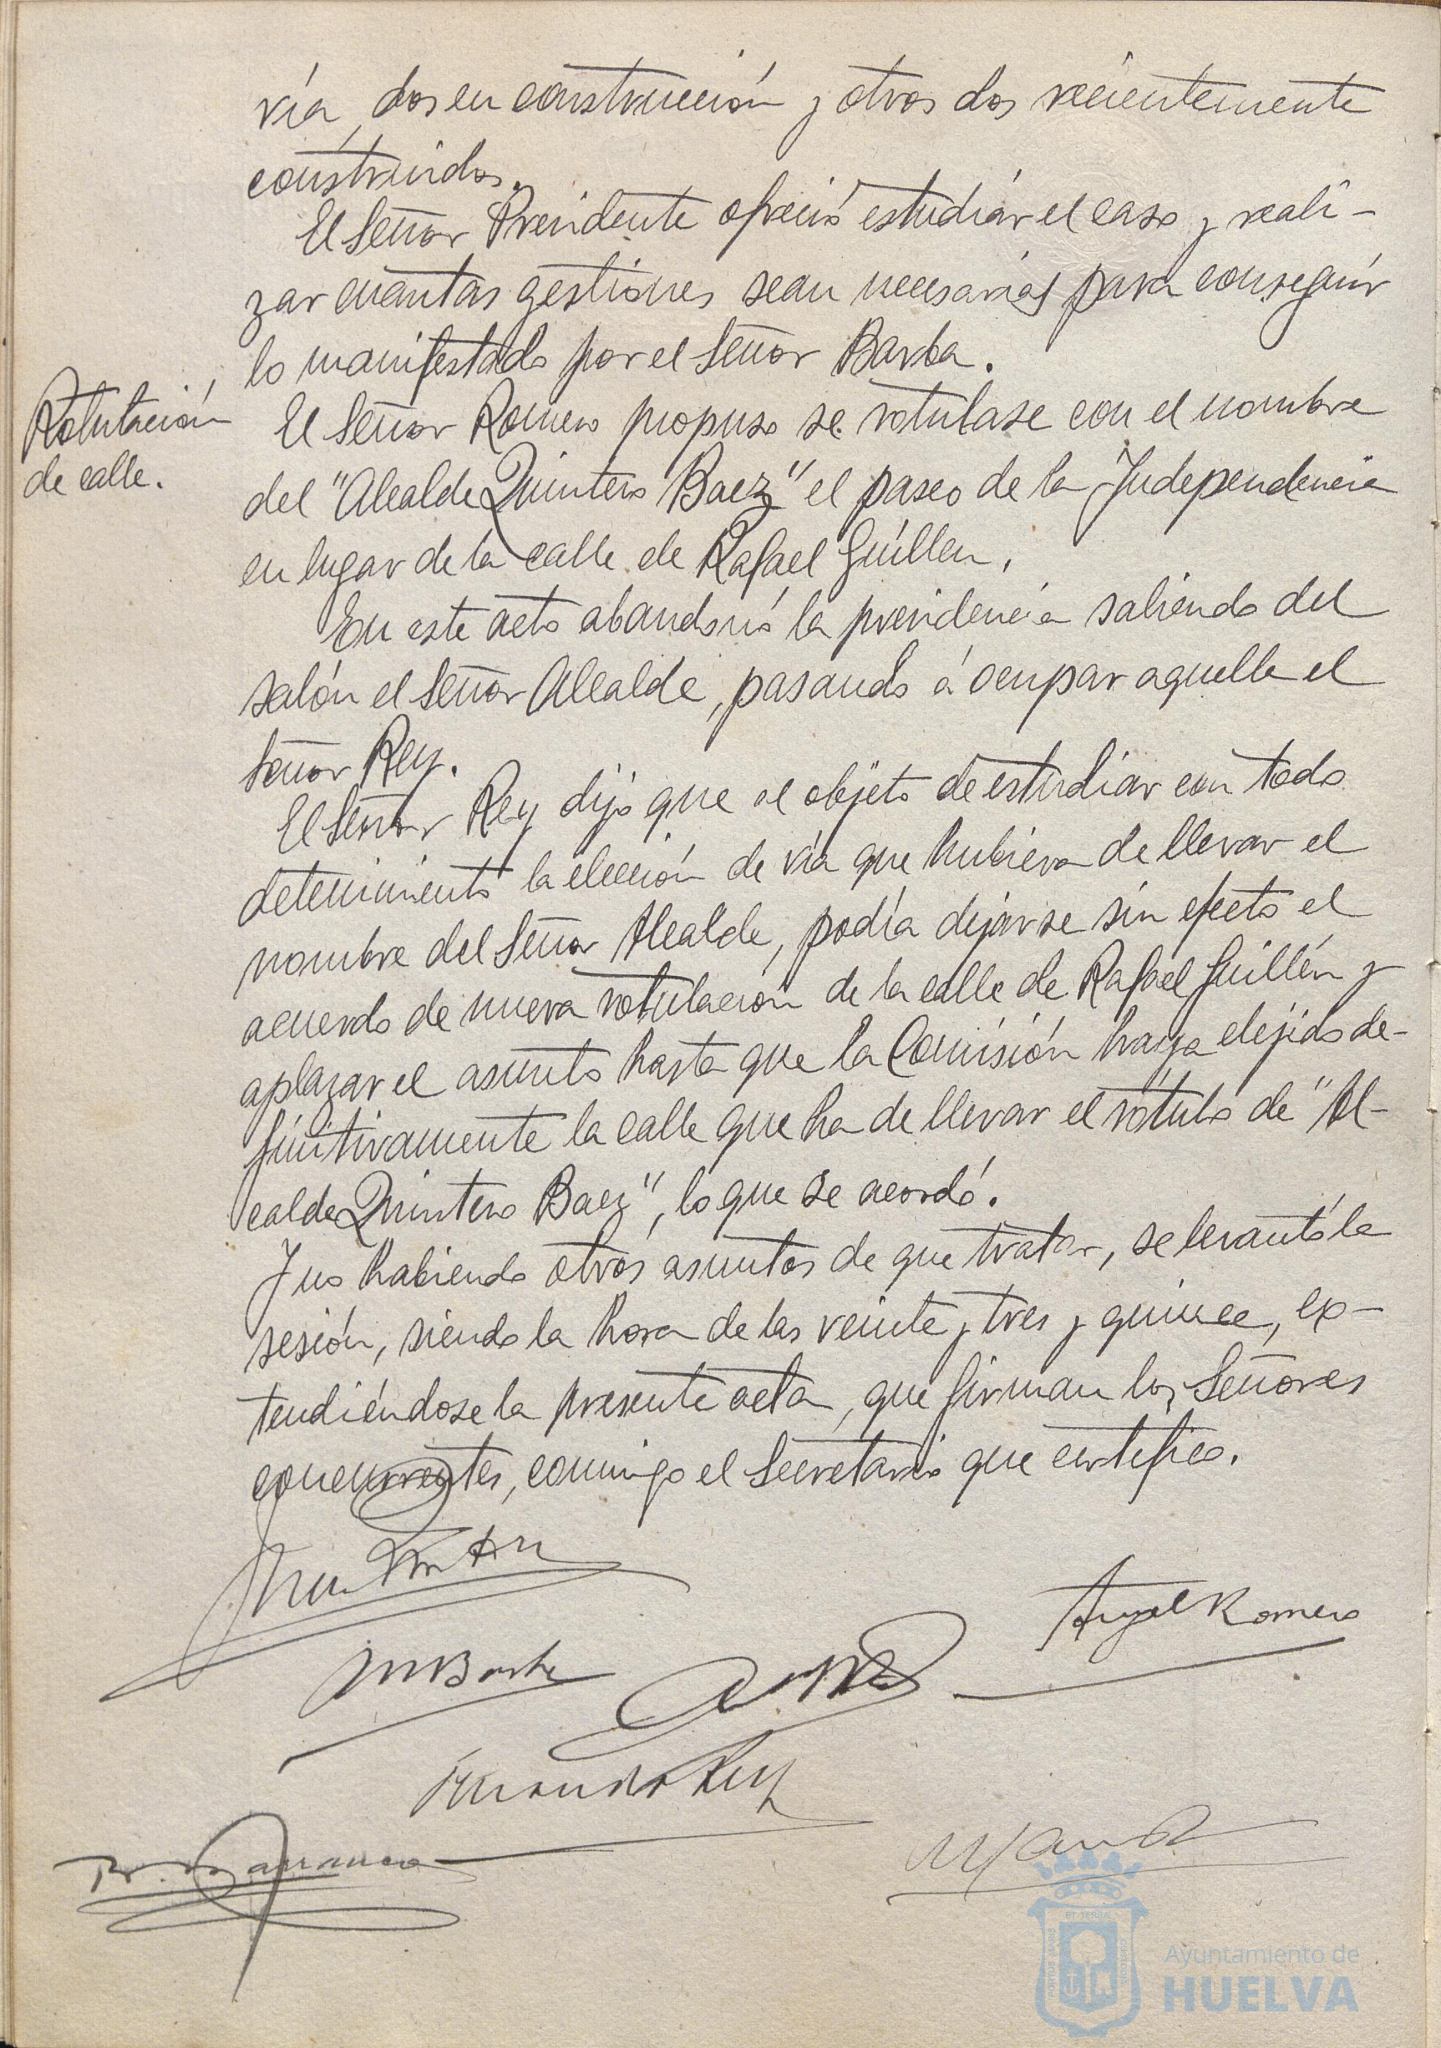 vía, dos en construcción y otros dos recientemente
construidos.
El Señor Presidente ofreció estudiár el caso y reali-
zar cuántas gestiones sean necesarias para conseguír
lo manifestado por el Señor Barba.
Rotulación
de calle.
El Señor Romero propuso se rotulase con el nombre
del "Alcalde Quintero Baez" el paseo de la Independencia
en lugar de la calle de Rafael Guíllen.
En este acto abandonó la presidencia saliendo del
salón el Señor Alcalde, pasando á ocupar aquella el
Señor Rey.
El Señor Rey dijo que al objeto de estudiar con todo
detenimiento la elección de vía que hubiera de llevar el
nombre del Señor Alcalde, podía dejarse sin efecto el
acuerdo de nueva rotulación de la calle de Rafael Guillén y
aplazar el asunto hasta que la Comisión haya elejido de-
finitivamente la calle que ha de llevar el rótulo de "Al-
calde Quintero Baez", lo que se acordó.
Y no habiendo otros asuntos de que tratar, se levantó la
sesión, siendo la hora de las veinte y tres y quince, ex-
tendiéndose la presente acta, que firman los Señores
concurrentes, conmigo el Secretario que certifico.
Angel Romero
M Barba
Fernando Rey
Ayuntamiento de
HUELVA